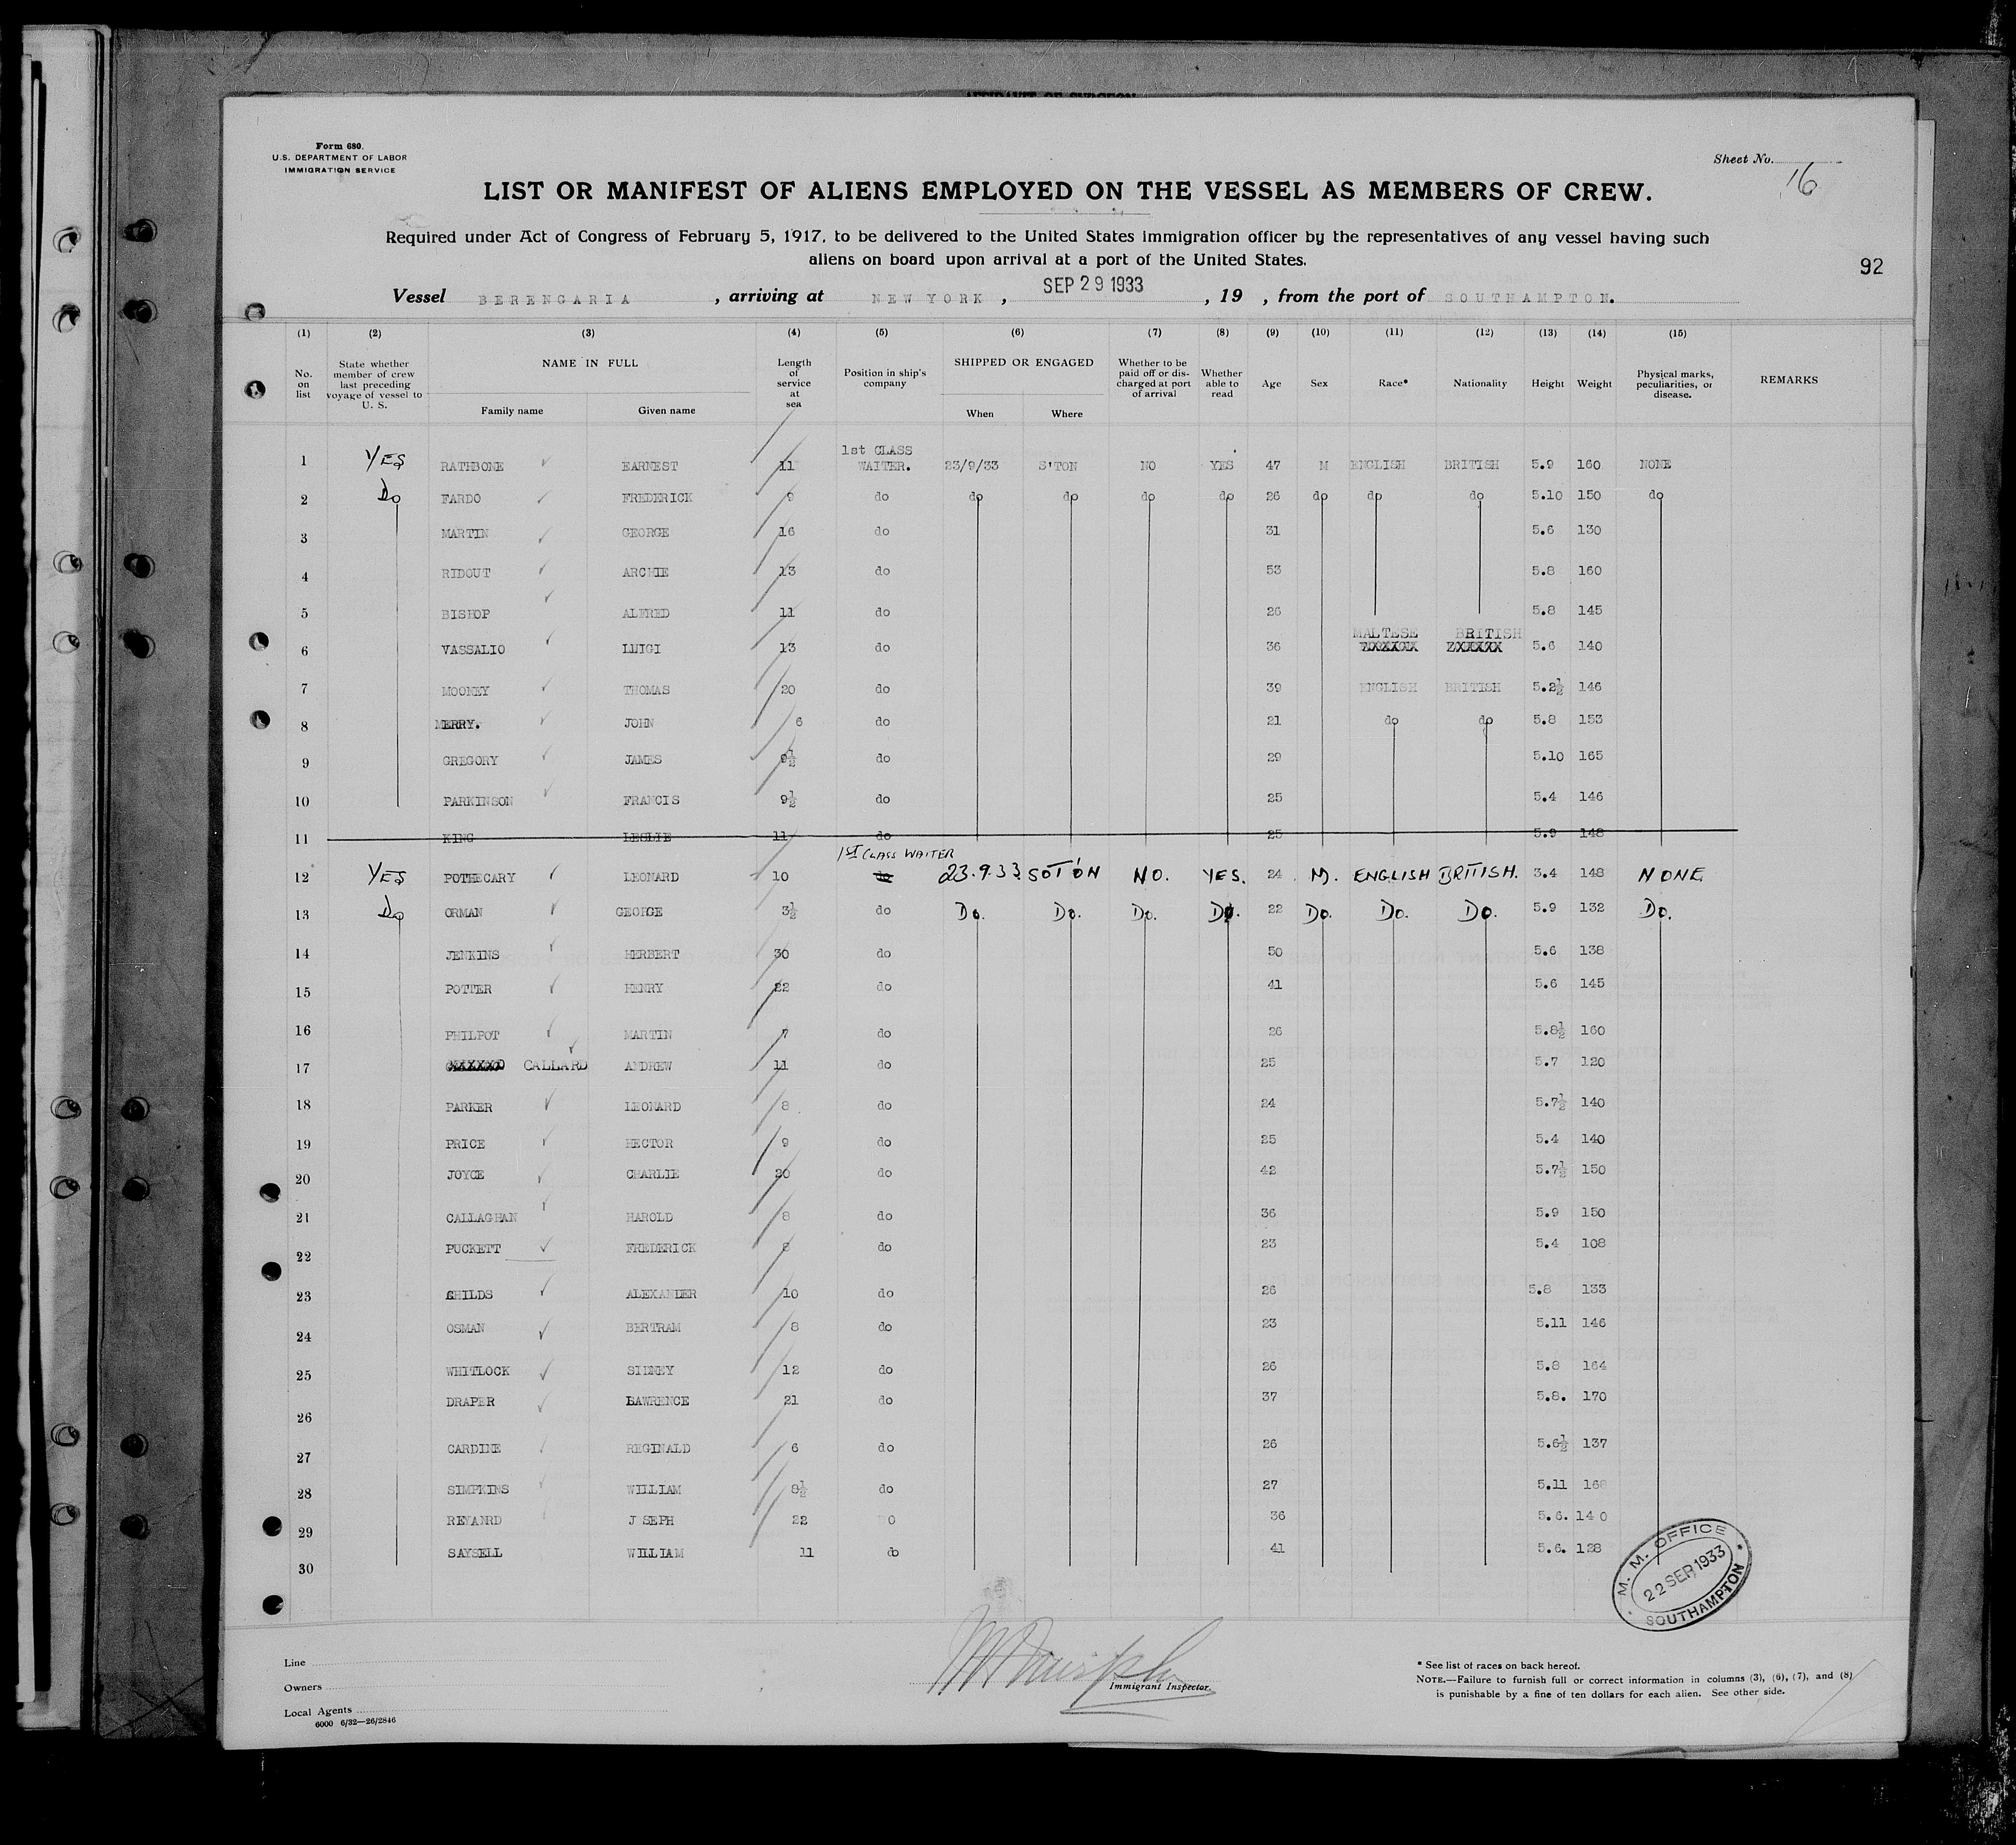 AFFIDAVIT OF SURGEON
Form 680.
U.S. DEPARTMENT OF LABOR
IMMIGRATION SERVICE
Sheet No.
16
LIST OR MANIFEST OF ALIENS EMPLOYED ON THE VESSEL AS MEMBERS OF CREW.
Required under Act of Congress of February 5, 1917, to be delivered to the United States immigration officer by the representatives of any vessel having such
aliens on board upon arrival at a port of the United States.
92
Vessel BERENGARIA, arriving at NEW YORK, SEP 29 1933, 19 , from the port of SOUTHAMPTON.
(1) (2) (3) (4) (5) (6) (7) (8) (9) (10) (11) (12) (13) (14) (15)
No. on list State whether member of crew last preceding voyage of vessel to U. S. NAME IN FULL Family name Given name Length of service at sea Position in ship's company SHIPPED OR ENGAGED When Where Whether to be paid off or discharged at port of arrival Whether able to read Age Sex Race* Nationality Height Weight Physical marks, peculiarities, or disease. REMARKS
1 YES RATHBONE EARNEST 11 1st CLASS WAITER. 23/9/33 S'TON NO YES 47 M ENGLISH BRITISH 5.9 160 NONE
2 Do FARDO FREDERICK 9 do do do do do 26 do do do 5.10 150 do
3 MARTIN GEORGE 16 do 31 5.6 130
4 RIDOUT ARCHIE 13 do 53 5.8 160
5 BISHOP ALFRED 11 do 26 5.8 145
6 VASSALIO LUIGI 13 do 36 MALTESE BRITISH 5.6 140
7 MOONEY THOMAS 20 do 39 ENGLISH BRITISH 5.2½ 146
8 MERRY. JOHN 6 do 21 do do 5.8 153
9 GREGORY JAMES 9½ do 29 5.10 165
10 PARKINSON FRANCIS 9½ do 25 5.4 146
11 KING LESLIE 11 do 25 5.9 148
12 YES POTHECARY LEONARD 10 do 1ST CLASS WAITER 23.9.33 SOT'ON NO. YES. 24 M. ENGLISH BRITISH. 3.4 148 NONE
13 Do ORMAN GEORGE 3½ do Do. Do. Do. Do. 22 Do. Do. Do. 5.9 132 Do.
14 JENKINS HERBERT 30 do 50 5.6 138
15 POTTER HENRY 22 do 41 5.6 145
16 PHILPOT MARTIN 7 do 26 5.8½ 160
17 CALLARD ANDREW 11 do 25 5.7 120
18 PARKER LEONARD 8 do 24 5.7½ 140
19 PRICE HECTOR 9 do 25 5.4 140
20 JOYCE CHARLIE 20 do 42 5.7½ 150
21 CALLAGHAN HAROLD 8 do 36 5.9 150
22 PUCKETT FREDERICK 8 do 23 5.4 108
23 CHILDS ALEXANDER 10 do 26 5.8 133
24 OSMAN BERTRAM 8 do 23 5.11 146
25 WHITLOCK SIDNEY 12 do 26 5.8 164
26 DRAPER LAWRENCE 21 do 37 5.8. 170
27 CARDINE REGINALD 6 do 26 5.6½ 137
28 SIMPKINS WILLIAM 8½ do 27 5.11 168
29 REYANRD J SEPH 22 DO 36 5.6. 140
30 SAYSELL WILLIAM 11 do 41 5.6. 128
M. M. OFFICE
22 SEP 1933
SOUTHAMPTON
Line
Owners
Local Agents
6000 6/32—26/2846
Immigrant Inspector.
* See list of races on back hereof.
NOTE.—Failure to furnish full or correct information in columns (3), (6), (7), and (8)
is punishable by a fine of ten dollars for each alien. See other side.